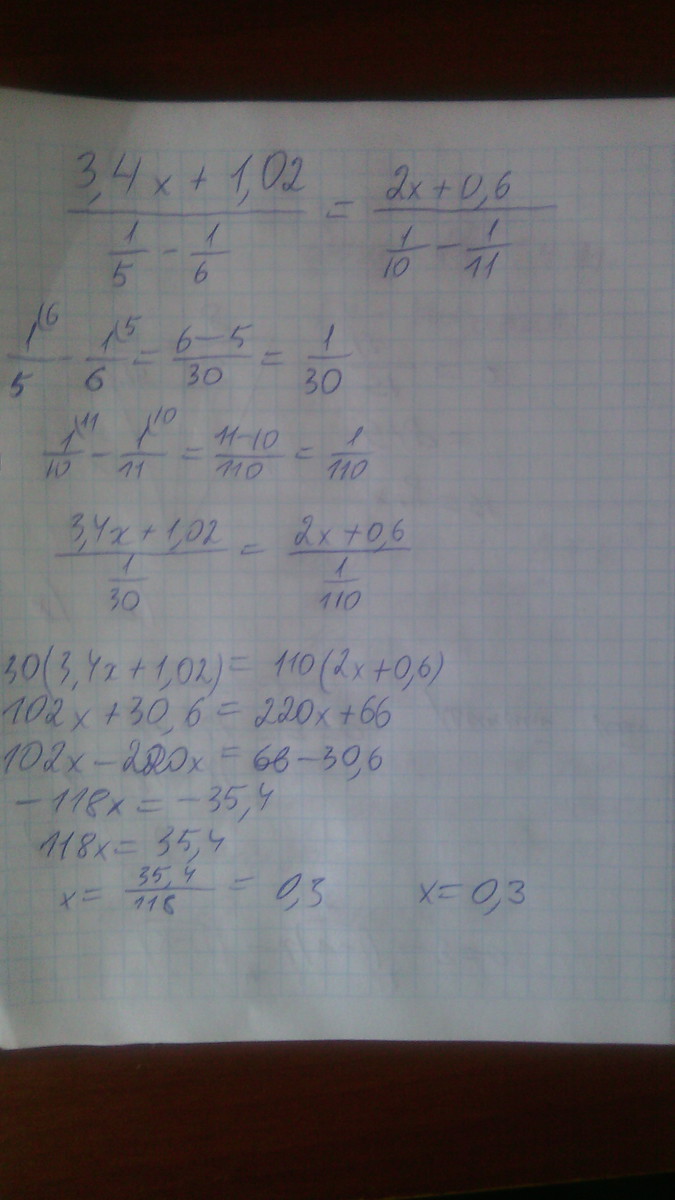 (3,4x + 1,02)/(1/5 - 1/6) = (2x+0,6)/(1/10 - 1/11)
1⁽⁶/5 - 1⁽⁵/6 = (6-5)/30 = 1/30
1⁽¹¹/10 - 1⁽¹⁰/11 = (11-10)/110 = 1/110
(3,4x+1,02)/(1/30) = (2x+0,6)/(1/110)
30(3,4x+1,02) = 110(2x+0,6)
102x+30,6 = 220x+66
102x-220x = 66-30,6
-118x = -35,4
118x = 35,4
x = 35,4/118 = 0,3 x = 0,3